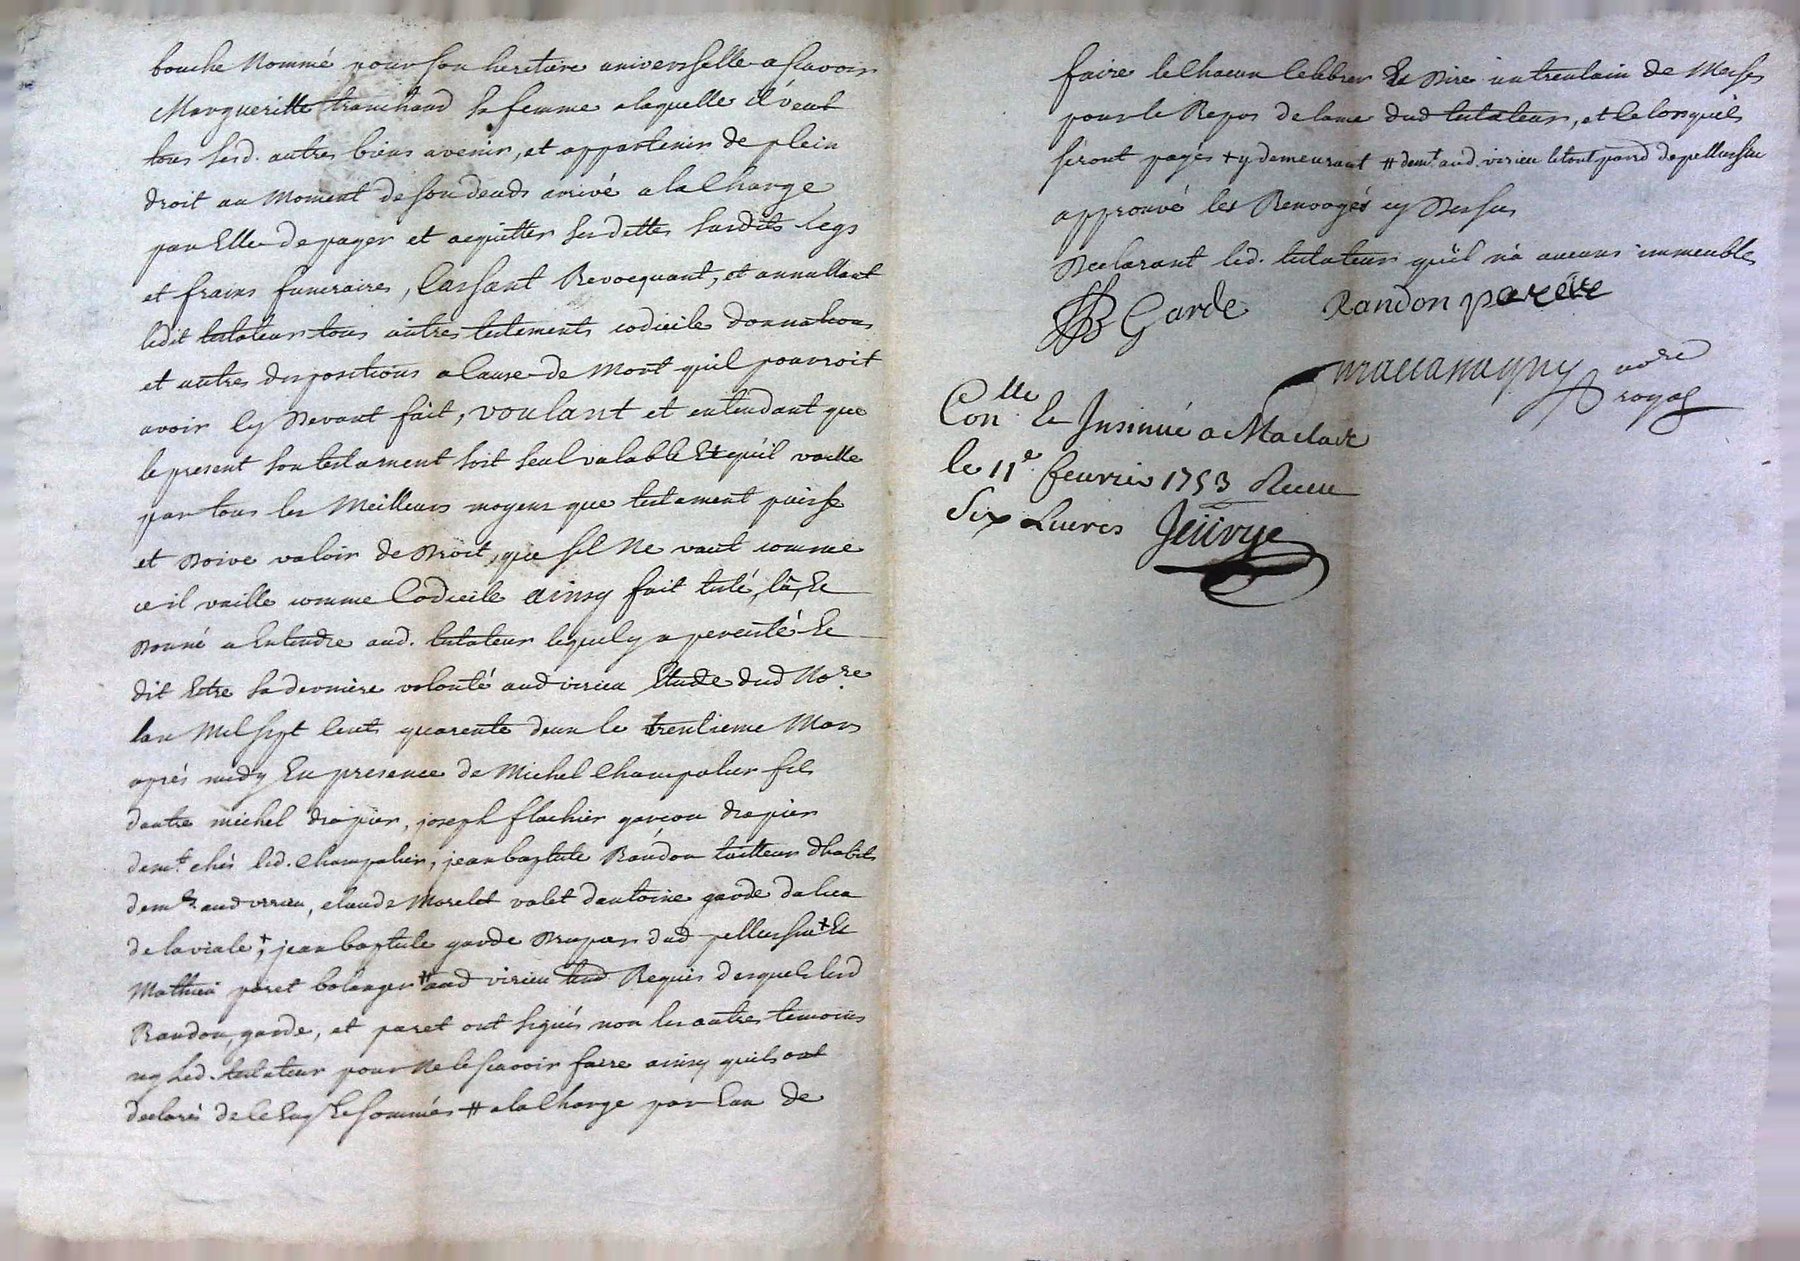 bouche nommé pour son heretiere universselle a sçavoir
Margueritte tranchand sa femme a laquelle il veut
tous sesd. autres biens avenir, et appartenir de plein
droit au moment de son deceds arrivé a la Charge
par Elle de payer et acquitter ses dettes susdits legs
et fraix funeraires, Cassant Revocquant, et annullant
ledit testateur tous autres testements codicile donnations
et autres dispositions a Cause de mort qu'il pourroit
avoir Cy devant fait, voulant et entendant que
le present son testament soit seul valable Et qu'il vaille
par tous les Meilleurs moyens que testament puisse
et doive valoir de droit, que sil ne vaut comme
ce il vaille comme Codicile ainsy fait testé, lû, Et
donné a Entendre aud. testateur lequel y a percisté Et
dit Estre sa derniere volonté aud virieu Etude dud No.re
lan Mil sept Cents quarente deux le trentieme Mars
aprés midy En presence de Michel Champalier fils
dautre michel drapier, joseph flachier garcon drapier
dem.t chés led. Champalier, jean baptiste Randon tailleur dhabits
dem.t aud virieu, claude Morelet valet dantoine garde du lieu
de la viale +, jean baptiste garde drapier dud pellussin + Et
Mathieu paret bolanger # aud virieu Requis desquels lesd
Randon, garde, et paret ont signés non les autres temoins
ny led. testateur pour ne le scavoir faire ainsy quils ont
declarés de ce Enq Et sommés # a la Charge par Eux de
faire le Chacun Celebrer Et dire un trentain de Messes
pour le Repos de lame dud testateur, et ce lorsquils
seront payés + y demeurant # dem.t aud. virieu le tout parr.e de pellussin
approuvé les Renvoyés cy dessus
declarant led. testateur qu'il n'a aucuns immeubles
JB Garde Randon paret
no.re
royal
Con.lle Et Insinué a Maclas
le 11e fevrier 1753 Receu
Six Livres